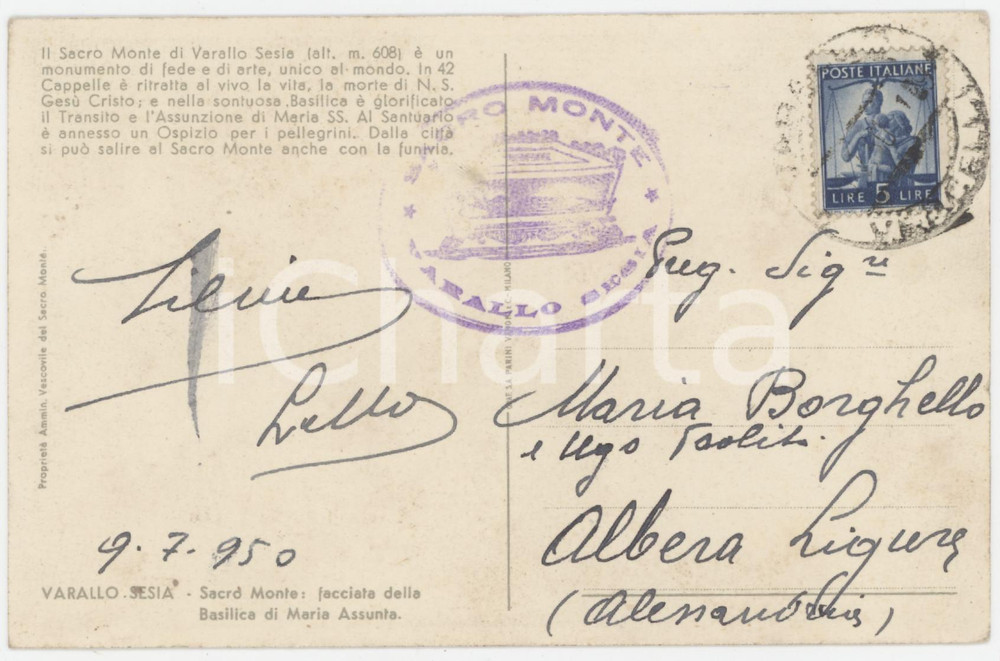 Il Sacro Monte di Varallo Sesia (alt. m. 608) è un
monumento di fede e di arte, unico al mondo. In 42
Cappelle è ritratta al vivo la vita, la morte di N. S.
Gesù Cristo; e nella sontuosa Basilica è glorificato
il Transito e l'Assunzione di Maria SS. Al Santuario
è annesso un Ospizio per i pellegrini. Dalla città
si può salire al Sacro Monte anche con la funivia.
SACRO MONTE
VARALLO SESIA
POSTE ITALIANE
LIRE 5 LIRE
Proprietà Ammin. Vescovile del Sacro Monte.
MILANO
iCharta
Lello
9.7.950
Preg. Sig.re
Maria Borghello
e Ugo
Albera Ligure
(Alessandria)
VARALLO SESIA - Sacro Monte: facciata della
Basilica di Maria Assunta.